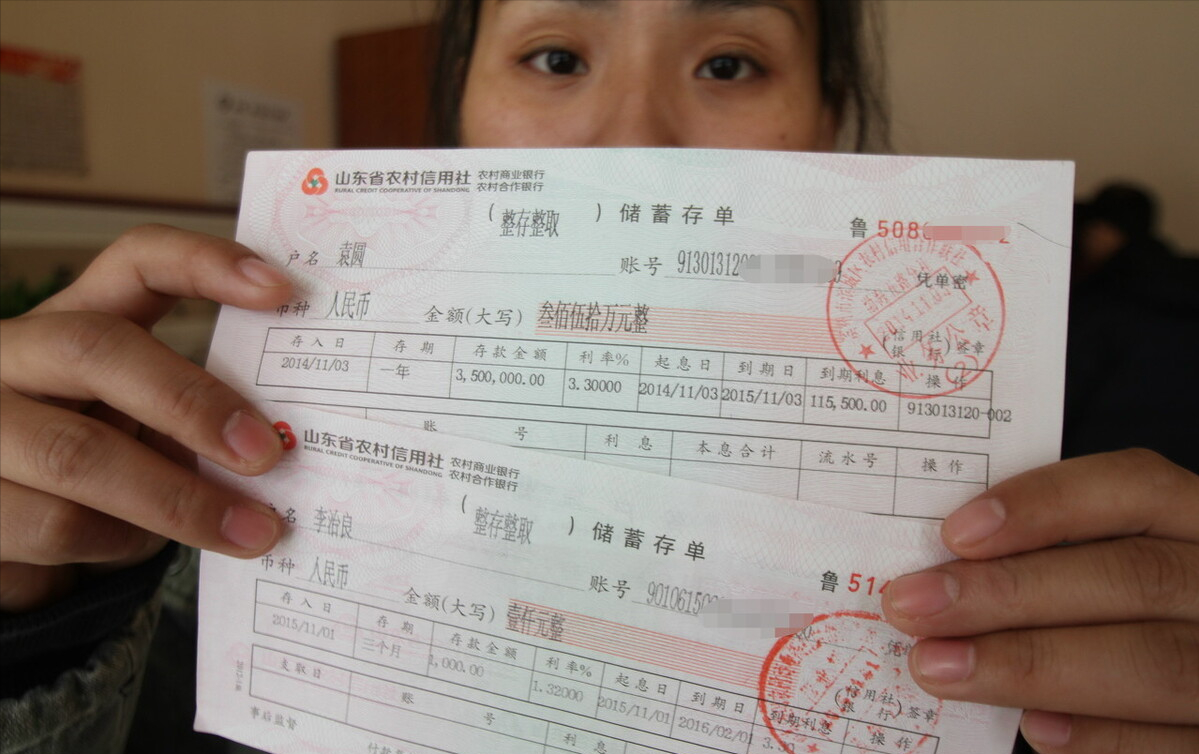 山东省农村信用社 农村商业银行
RURAL CREDIT COOPERATIVE OF SHANDONG 农村合作银行
(整存整取) 储蓄存单
鲁 508
户名 袁圆
账号 913013120
凭单密
币种 人民币 金额(大写) 叁佰伍拾万元整
2014.11.03
(信用社 银行) 签章
存入日 存期 存款金额 利率% 起息日 到期日 到期利息 操作
2014/11/03 一年 3,500,000.00 3.30000 2014/11/03 2015/11/03 115,500.00 913013120-002
账号 利息 本息合计 流水号 操作
山东省农村信用社 农村商业银行
RURAL CREDIT COOPERATIVE OF SHANDONG 农村合作银行
(整存整取) 储蓄存单
鲁 514
户名 李治良
账号 90106150
币种 人民币 金额(大写) 壹仟元整
(信用社 银行) 签章
存入日 存期 存款金额 利率% 起息日 到期日 到期利息 操作
2015/11/01 三个月 1,000.00 1.32000 2015/11/01 2016/02/01 3.30
支取日 账号 利息
事后监督